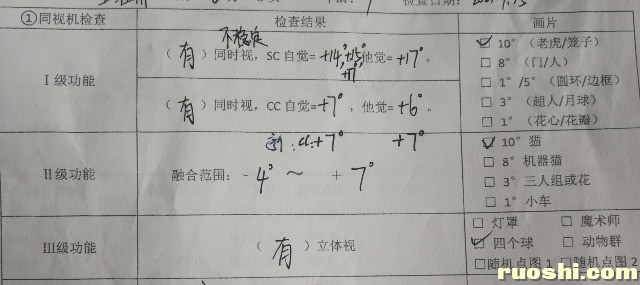 检查日期:
①同视机检查 检查结果 画片
不稳定
Ⅰ级功能
(有)同时视,SC 自觉=+14°,+15°,他觉=+17°。
+17°
(有)同时视,CC 自觉=+7°,他觉=+6°。
☑ 10°(老虎/笼子)
□ 8°(门/人)
□ 1°/5°(圆环/边框)
□ 3°(超人/月球)
□ 1°(花心/花瓣)
Ⅱ级功能
CC:+7° +7°
融合范围:- 4° ~ + 7°
☑ 10°猫
□ 8°机器猫
□ 3°三人组或花
□ 1°小车
Ⅲ级功能
(有)立体视
□ 灯罩 □ 魔术师
☑ 四个球 □ 动物群
□随机点图 1 □随机点图 2
ruoshi.com